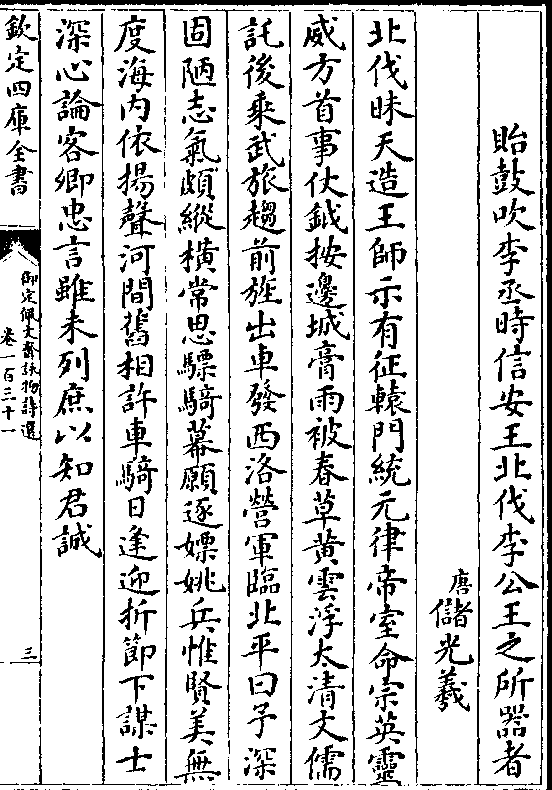 貽鼓吹李丞時信安王北伐李公王之所器者
唐儲光羲
北伐昧天造王師示有征轅門統元律帝室命宗英靈
威方首事仗鉞按邊城膏雨被春草黃雲浮太清文儒
託後乘武旅趨前旌出車發西洛營軍臨北平曰予深
固陋志氣頗縱橫常思驃騎幕願逐嫖姚兵惟賢美無
度海內依揚聲河間舊相許車騎日逢迎折節下謀士
深心論客卿忠言雖未列庶以知君誠
欽定四庫全書
御定佩文齋詠物詩選
卷一百三十一
三